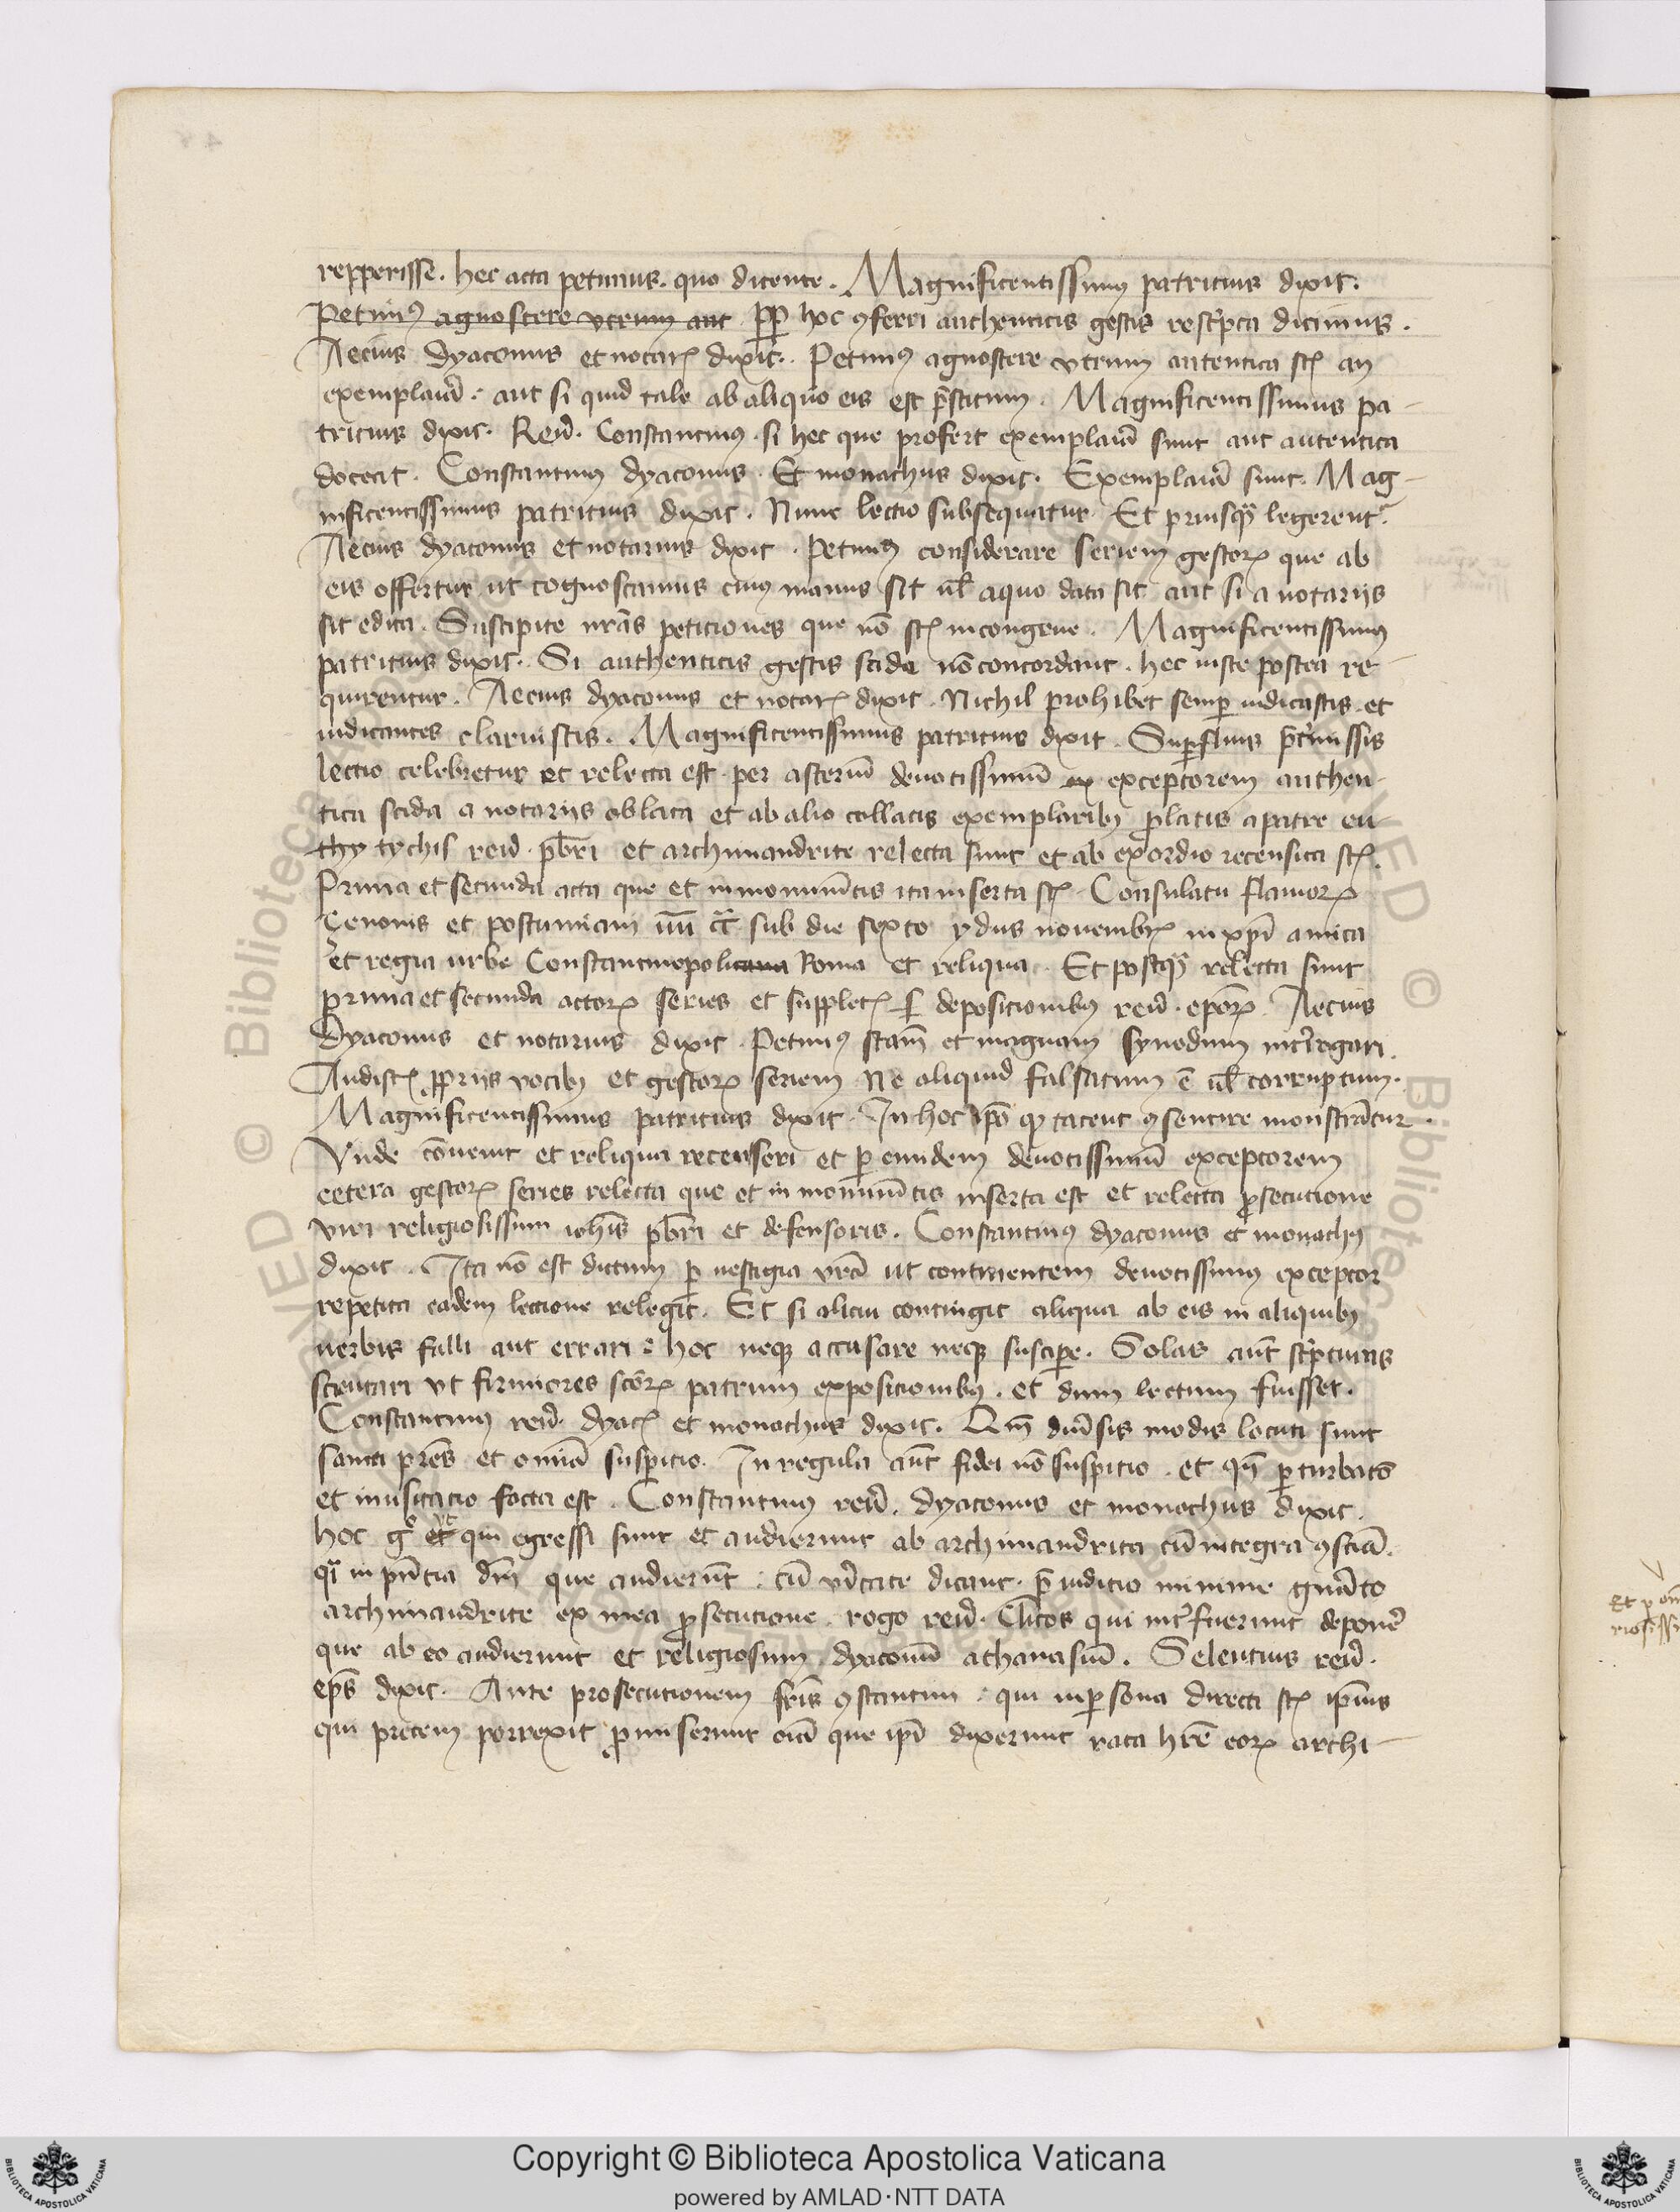 repperisse. hec acta petimus. quo dicente. Magnificentissimꝰ patritius dixit.
Petimꝰ agnoscere vtrum aut ꝓp̄ hoc ꝯferri authenticis gestis rescͥpta dicimus.
Aecius dyaconus et notarꝭ dixit. Petimꝰ agnoscere vtrum autentica stꝭ an
exemplaria. aut si quid tale ab aliquo eis est p̄stitum. Magnificentissimus pa-
tritius dixit. Reuͩ. Constantinꝰ. si hec que profert exemplaria sunt aut autentica
doceat. Constantinꝰ dyaconus. Et monachus dixit. Exemplaria sunt. Mag-
nificentissimus patritius dixit. Nunc lectio subsequatur. Et priusqͣ legerentͬ.
Aecius dyaconus et notarius dixit. Petimꝰ considerare seriem gestoꝝ que ab
eis offertur ut cognoscamus cuiꝰ manus sit ul̄ a quo data sit aut si a notariis
sit edita. Suscipite nr̄as peticiones que nō stꝭ incongrue. Magnificentissimꝰ
patritius dixit. Si authenticis gestis scida nō concordant. hec iuste postea re-
quirentur. Aecius dyaconus et notarꝭ dixit. Nichil prohibet semꝑ iudicastis. et
iudicantes claruistis. Magnificentissimus patritius dixit. Suꝑfluis p̄termissis
lectio celebretur et relecta est. per asteriū deuotissimū ex exceptorem authen-
tica scida a notariis oblata et ab alio collatis exemplaribꝰ ꝓlatis a patre eu-
thy tychis reuͩ. pb̄ri et archimandrite relecta sunt et ab exordio recensita stꝭ.
Prima et secunda acta que et in monumētis ita inserta stꝭ. Consulatu flauioꝝ
Cenonis et postumiani sub die sexto ydus nouembrꝭ in xp̄i amica
et regia urbe Constantinopolitana Roma et reliqua. Et postqͣ relecta sunt
prima et secunda actoꝝ series et suppletꝭ depositionibꝰ reuͩ. epōꝝ. Aecius
Dyaconus et notarius dixit. Petimꝰ sc̄am et magnam synodum int̄rogari.
Audistꝭ ꝓpriis vocibꝰ et gestoꝝ seriem. Ne aliquid falsatum ē ul̄ corruptum.
Magnificentissimus patritius dixit. In hoc ip̄o qꝫ tacent ꝯsentire monstrātur.
Vnde cōuenit et reliqua recenseri et ꝑ eundem deuotissimū exceptorem
cetera gestoꝝ series relecta que et in monumētis inserta est et relecta ꝓsecutione
viri religiosissimi ioh̄is pb̄ri et defensoris. Constantinꝰ dyaconus et monachꝰ
dixit. Ita nō est dictum ꝑ uestigia vr̄a ut continentem deuotissimꝰ exceptor
repetita eadem lectione relegit. Et si alicui contingit aliqua ab eis in aliquibꝰ
uerbis falli aut errari. hoc neqꝫ accusare neqꝫ susciꝑe. Solas aūt scͥpturas
scrutari vt firmiores sc̄oꝝ patrum expositionibꝰ. et dum lectum fuisset.
Constantinꝰ reuͩ. dyacꝭ et monachus dixit. Qm̄ diu̇sis modis locuti sunt
sancti pr̄es et omīa suspitio. In regula aūt fidei nō suspitio. et qn̄ ꝑturbatō
et inusitatio facta est. Constantinꝰ reuͩ. dyaconus et monachus dixit.
hoc gͦ et ut qui egressi sunt et audierunt ab archimandrita cū integra ꝯscīa.
qͣ in pn̄tia dn̄i que audierūt. cū v̇itate dicant. p̄iuditio minime gnāto
archimandrite ex mea ꝓsecutione. rogo reuͩ. Cl̄icos qui int̄fuerunt depon̄e
que ab eo audierunt et religiosum. dyaconū athanasiū. Seleucius reuͩ.
ep̄s dixit. Ante prosecutionem fr̄is ꝯstantini. qui in ꝑsona directi stꝭ ip̄ius
qui precem porrexit ꝓmiserunt oīa que ip̄i dixerunt rata hr̄e eoꝝ archi-
Et p
Copyright © Biblioteca Apostolica Vaticana
powered by AMLAD·NTT DATA